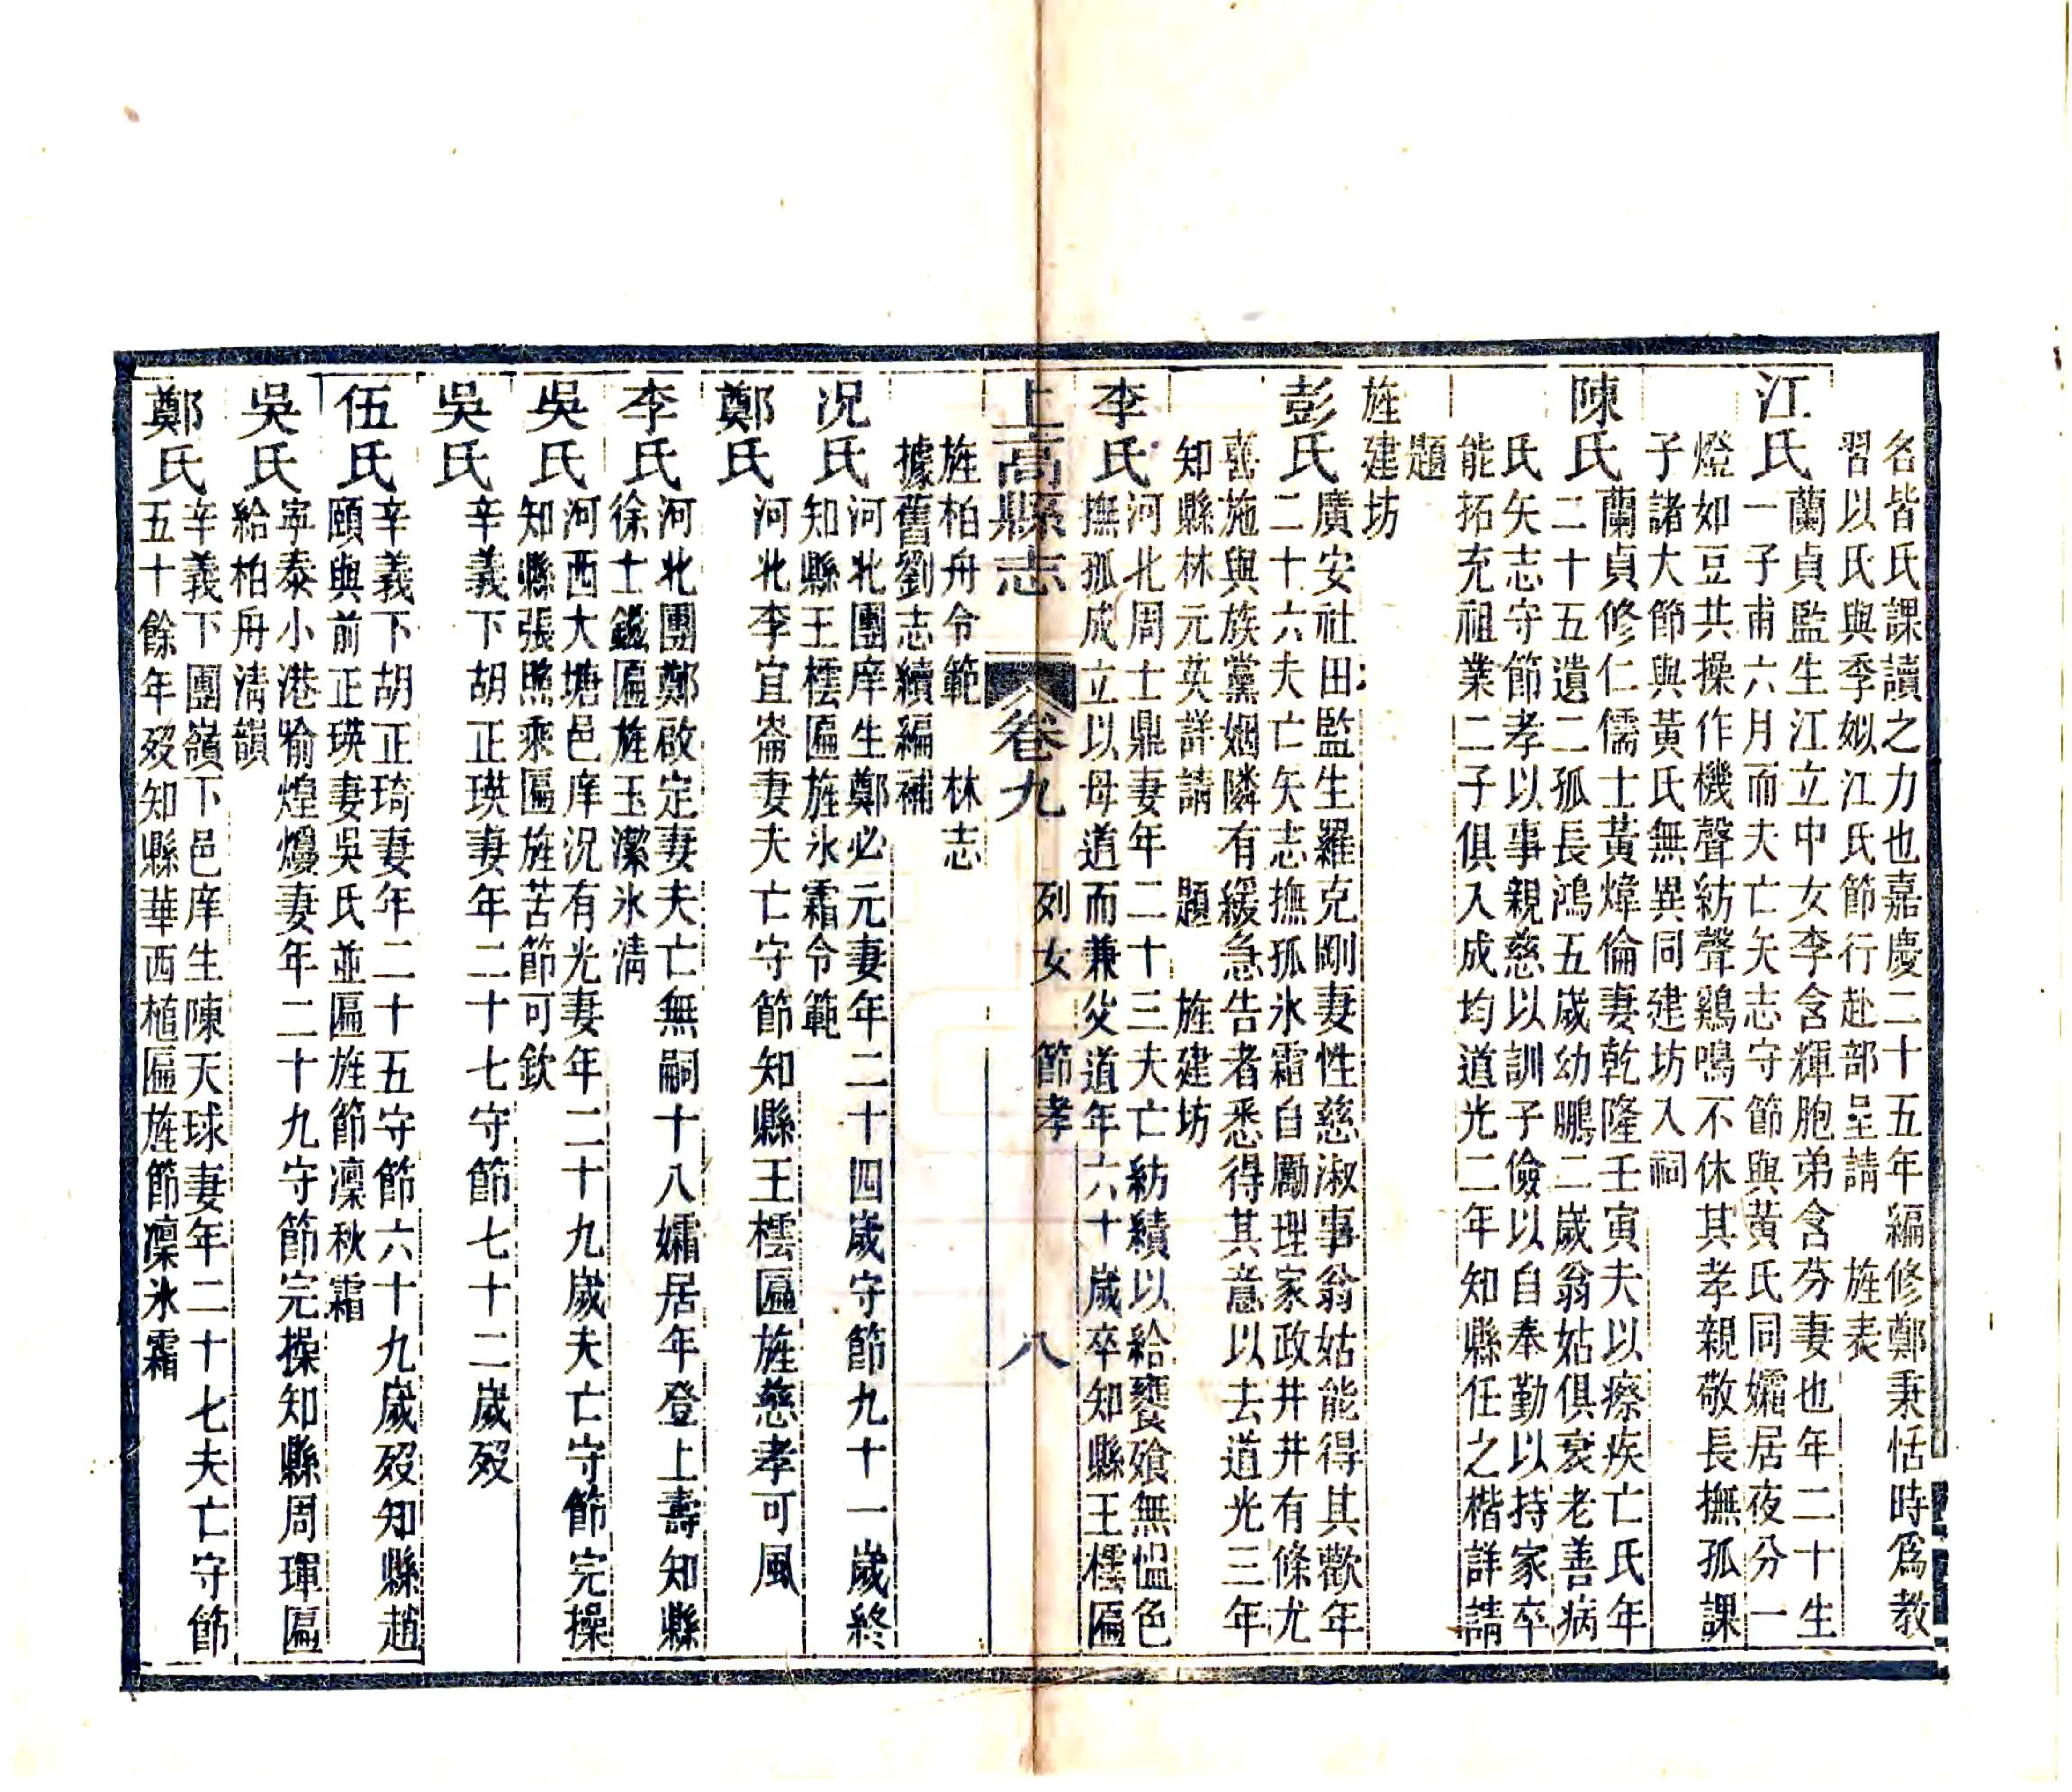 名皆氏課讀之力也嘉慶二十五年編修鄭秉恬時爲教
習以氏與季姒江氏節行赴部呈請 旌表
江氏蘭貞監生江立中女李含輝胞弟含芬妻也年二十生
一子甫六月而夫亡矢志守節與黃氏同孀居夜分一
燈如豆共操作機聲紡聲鷄鳴不休其孝親敬長撫孤課
子諸大節與黃氏無異同建坊入祠
陳氏蘭貞修仁儒士黃煒倫妻乾隆壬寅夫以瘵疾亡氏年
二十五遺二孤長鴻五歲幼鵬二歲翁姑俱衰老善病
氏矢志守節孝以事親慈以訓子儉以自奉勤以持家卒
能拓充祖業二子俱入成均道光二年知縣任之楷詳請
題
旌建坊
彭氏廣安社田監生羅克剛妻性慈淑事翁姑能得其歡年
二十六夫亡矢志撫孤氷霜自勵理家政井井有條尤
喜施與族黨姻隣有緩急告者悉得其意以去道光三年
知縣林元英詳請 題 旌建坊
李氏河北周士鼎妻年二十三夫亡紡績以給饔飧無慍色
撫孤成立以母道而兼父道年六十歲卒知縣王樰匾
上高縣志 卷九 列女 節孝 八
旌柏舟令範 林志
據舊劉志續編補
况氏河北團庠生鄭必元妻年二十四歲守節九十一歲終
知縣王樰匾旌氷霜令範
鄭氏河北李宜崙妻夫亡守節知縣王樰匾旌慈孝可風
李氏河北團鄭啟定妻夫亡無嗣十八孀居年登上壽知縣
徐士鎰匾旌玉潔氷清
吳氏河西大塘邑庠况有光妻年二十九歲夫亡守節完操
知縣張照乘匾旌苦節可欽
吳氏辛義下胡正瑛妻年二十七守節七十二歲歿
伍氏辛義下胡正琦妻年二十五守節六十九歲歿知縣趙
頤與前正瑛妻吳氏並匾旌節凜秋霜
吳氏寜泰小港喻煌爕妻年二十九守節完操知縣周琿匾
給柏舟清韻
鄭氏辛義下團嶺下邑庠生陳天球妻年二十七夫亡守節
五十餘年歿知縣華西植匾旌節凜氷霜